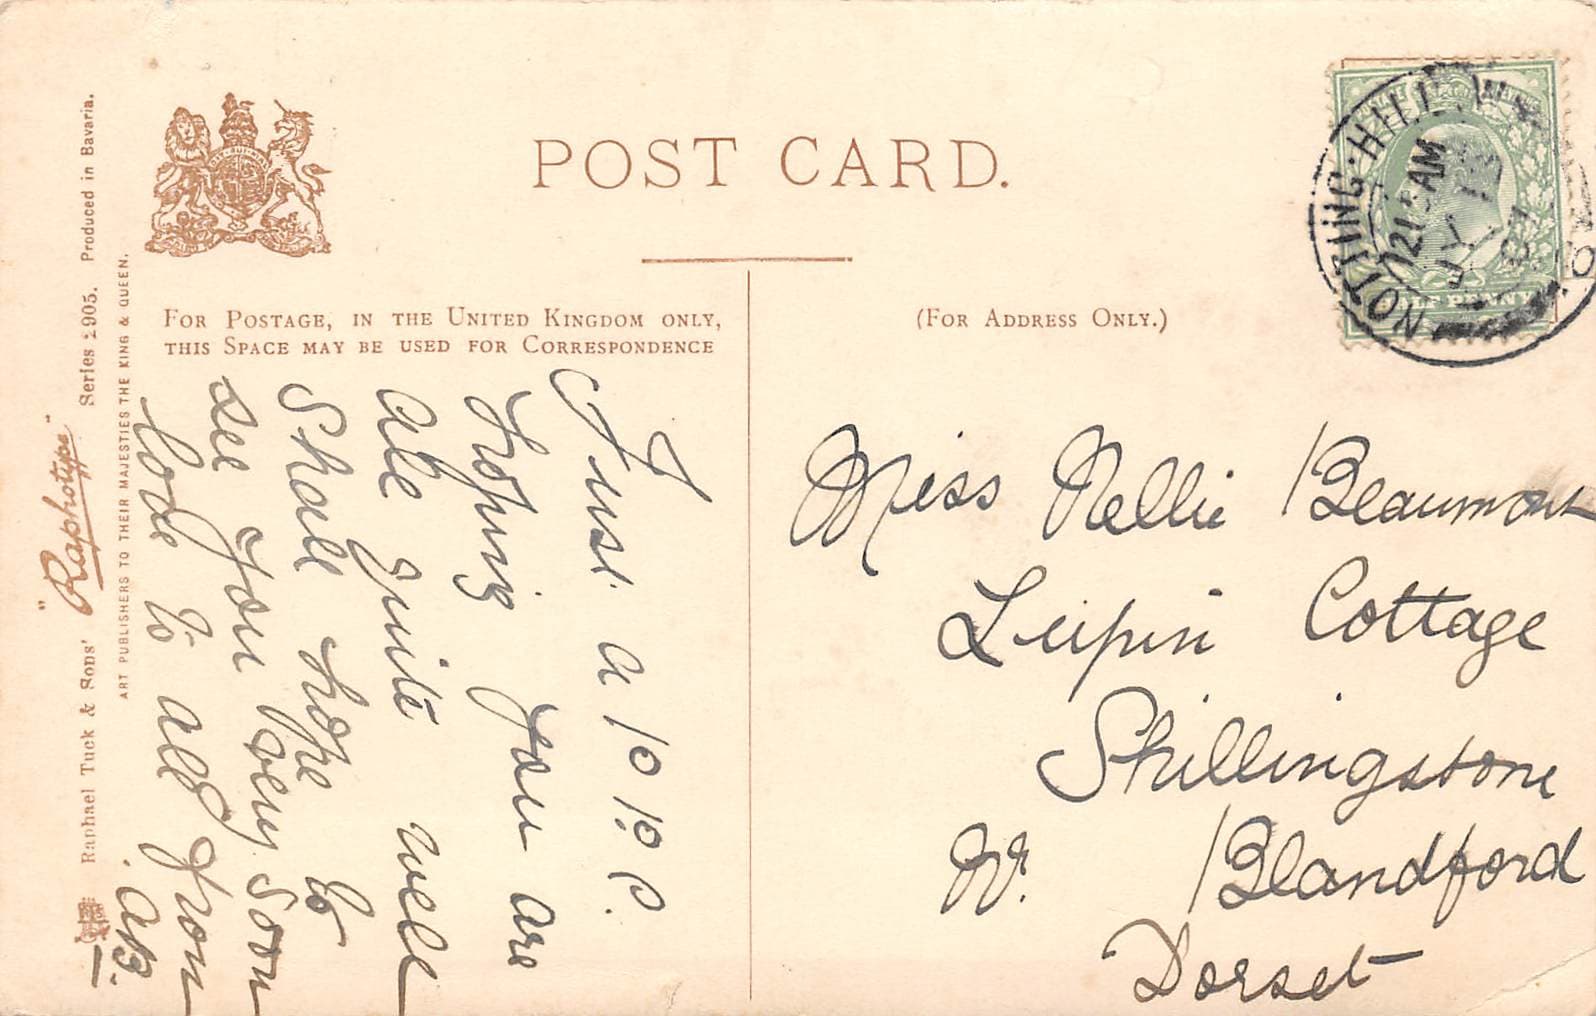 POST CARD.
FOR POSTAGE, IN THE UNITED KINGDOM ONLY,
THIS SPACE MAY BE USED FOR CORRESPONDENCE
(FOR ADDRESS ONLY.)
Just a P.P.C.
Hoping you are
all quite well
Shall hope to
see you very soon
love to all from
AB.
Miss Nellie Beaumont
Cottage
Shillingstone
Nr. Blandford
Dorset
NOTTING HILL
12 15 AM
JY
HALF PENNY
Raphael Tuck & Sons' "Raphotype" Series 2905. Produced in Bavaria.
ART PUBLISHERS TO THEIR MAJESTIES THE KING & QUEEN.